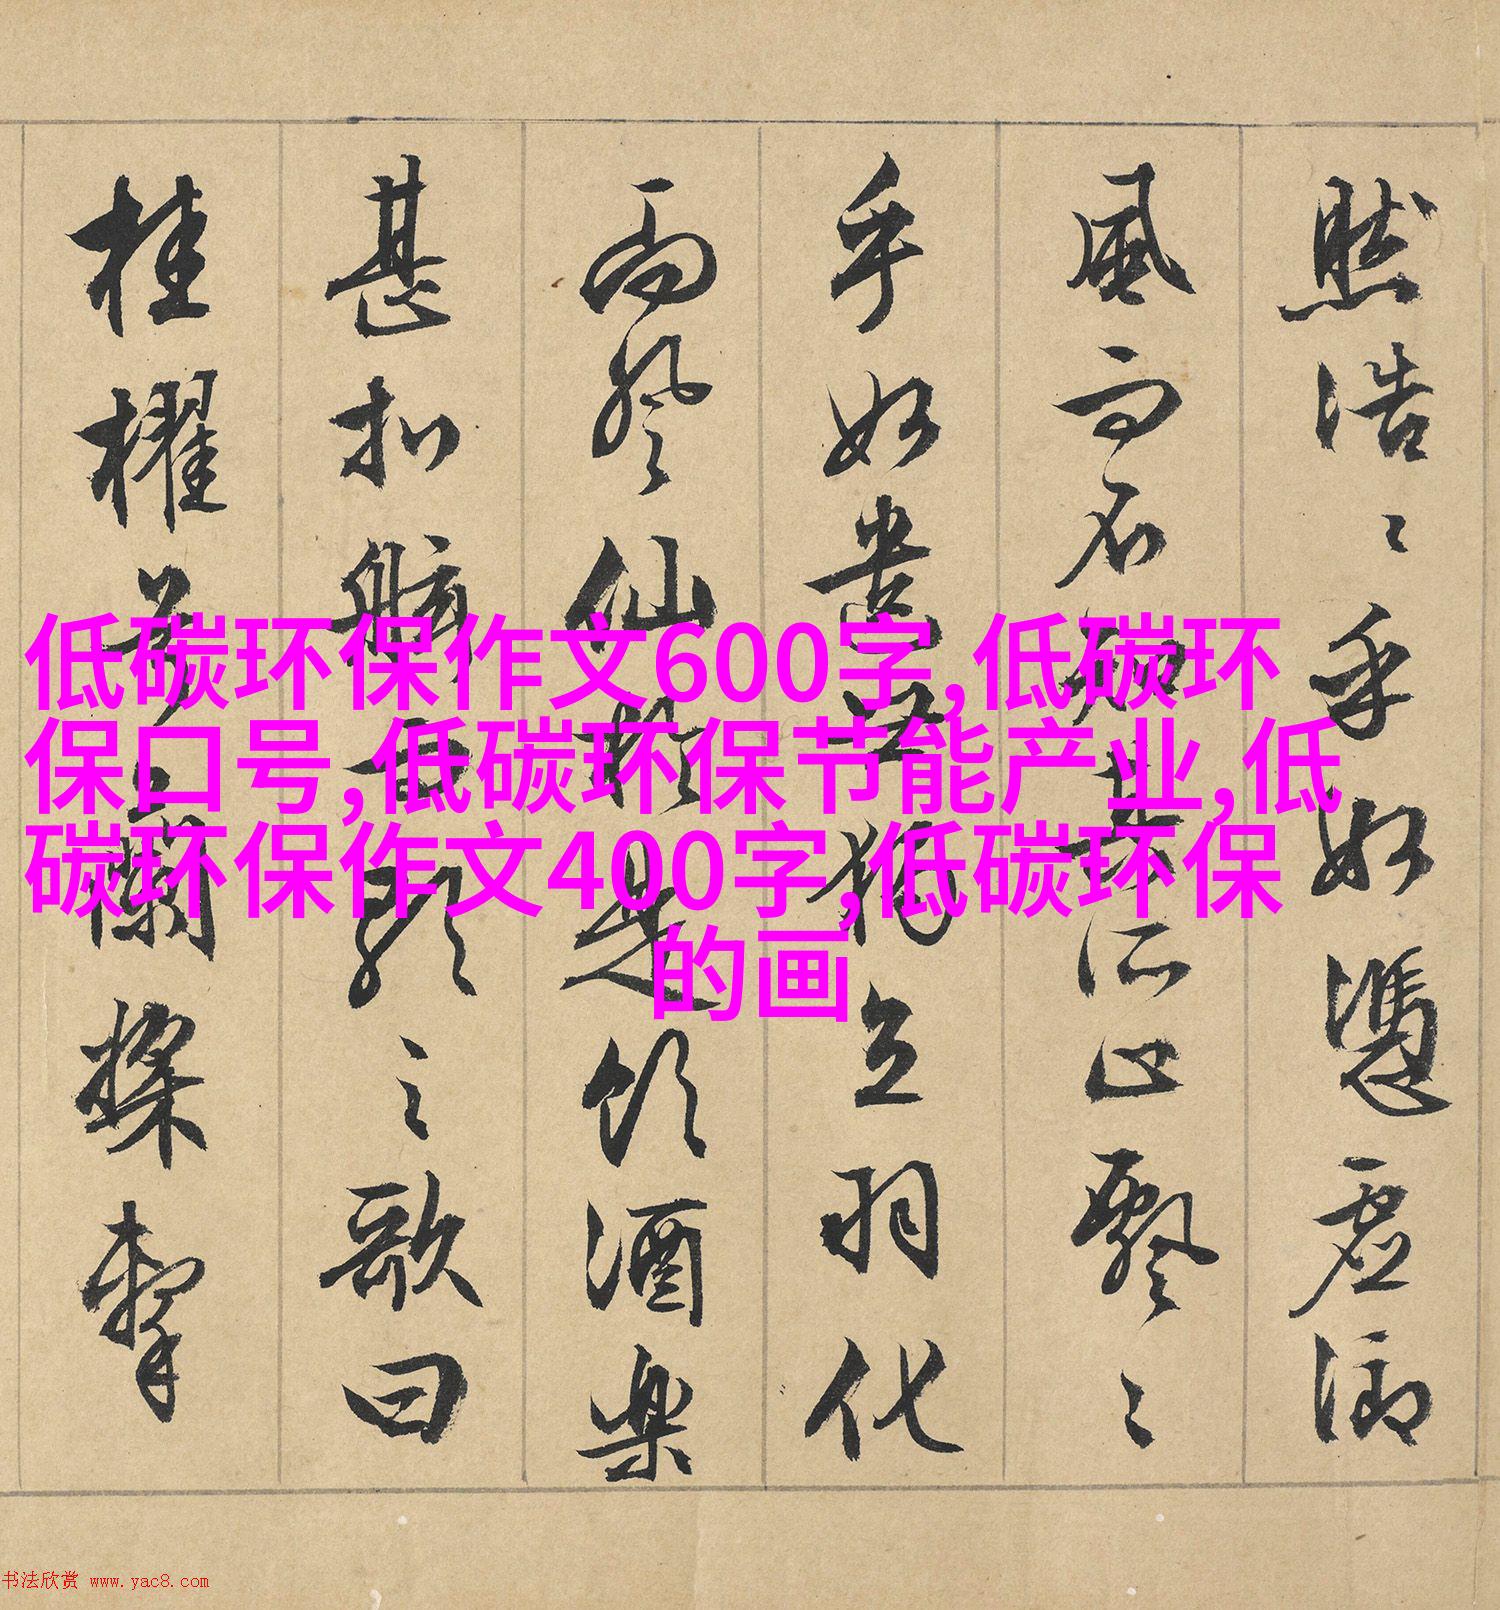 然浩〻乎如憑虛御
風而不知其所止飄〻
乎如遺世獨立羽化
而登仙於是飲酒樂
甚扣舷而歌之歌曰
桂櫂兮蘭槳擊
低碳环保作文600字,低碳环
保口号,低碳环保节能产业,低
碳环保作文400字,低碳环保
的画
书法欣赏 www.yac8.com